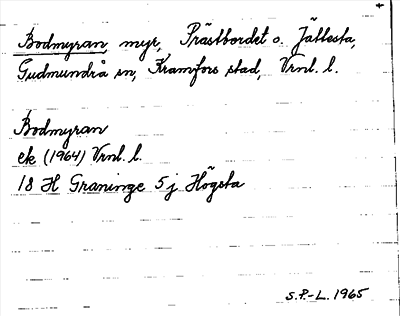 Bodmyran, myr, Prästbordet o. Jättesta,
Gudmundrå sn, Kramfors stad, Vrnl. l.
Bodmyran
ek (1964) Vrnl. l.
18 H Graninge 5 j Högsta
S.P.-L. 1965